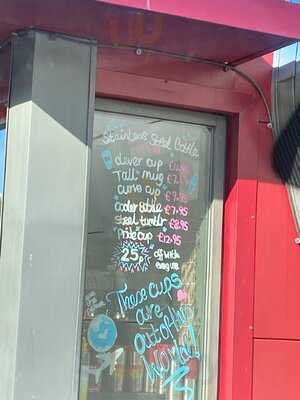 Stainless Steel Bottle
clever cup
Tall mug
curve cup £7.95
cooler Bottle £7.95
steel tumblr £8.95
Pride cup £12.95
25p off with
These cups
are
out of this
World!